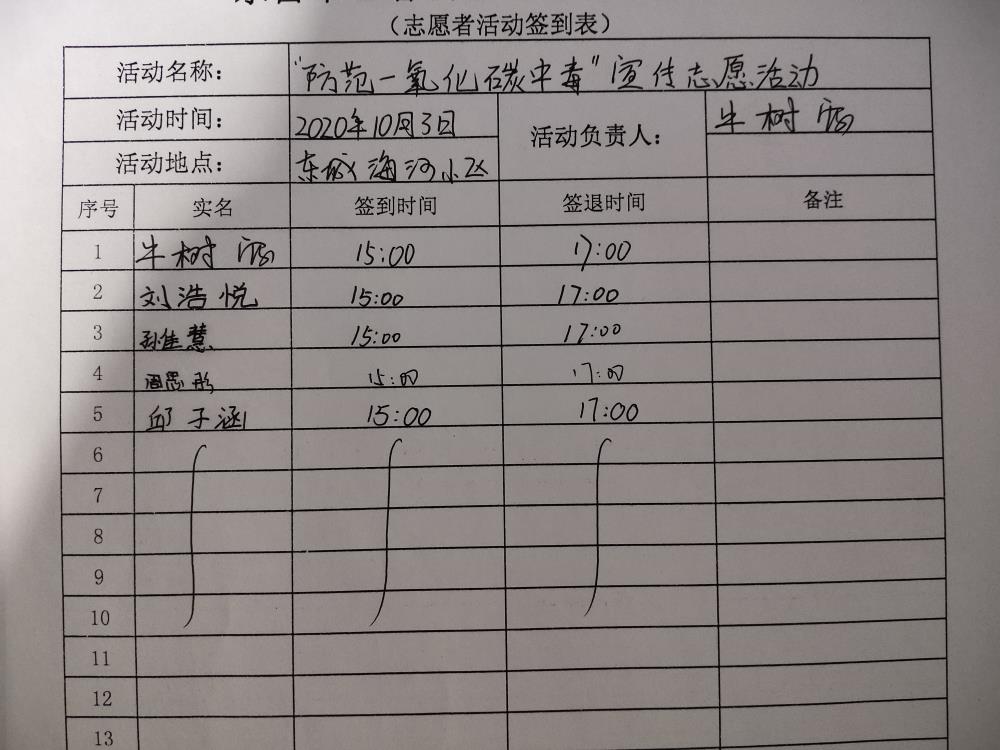 （志愿者活动签到表）
活动名称： “防范一氧化碳中毒”宣传志愿活动
活动时间： 2020年10月3日 活动负责人： 牛树
活动地点： 东城海河小区
序号 实名 签到时间 签退时间 备注
1 牛树 15:00 17:00
2 刘浩悦 15:00 17:00
3 孙佳慧 15:00 17:00
4 周思彤 15:00 17:00
5 邱子涵 15:00 17:00
6
7
8
9
10
11
12
13